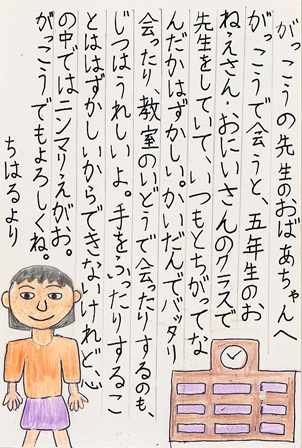 がっこうの先生のおばあちゃんへ
がっこうで会うと、五年生のお
ねえさん・おにいさんのクラスで
先生をしていて、いつもとちがってな
んだかはずかしい。かいだんでバッタリ
会ったり、教室のいどうで会ったりするのも、
じつはうれしいよ。手をふったりするこ
とははずかしいからできないけれど、心
の中ではニンマリえがお。
がっこうでもよろしくね。
ちはるより